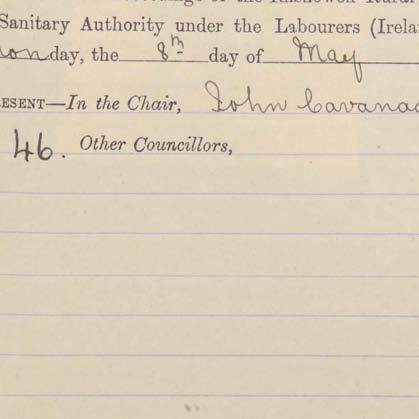 Sanitary Authority under the Labourers
Monday, the 8th day of May
—In the Chair, John
46. Other Councillors,